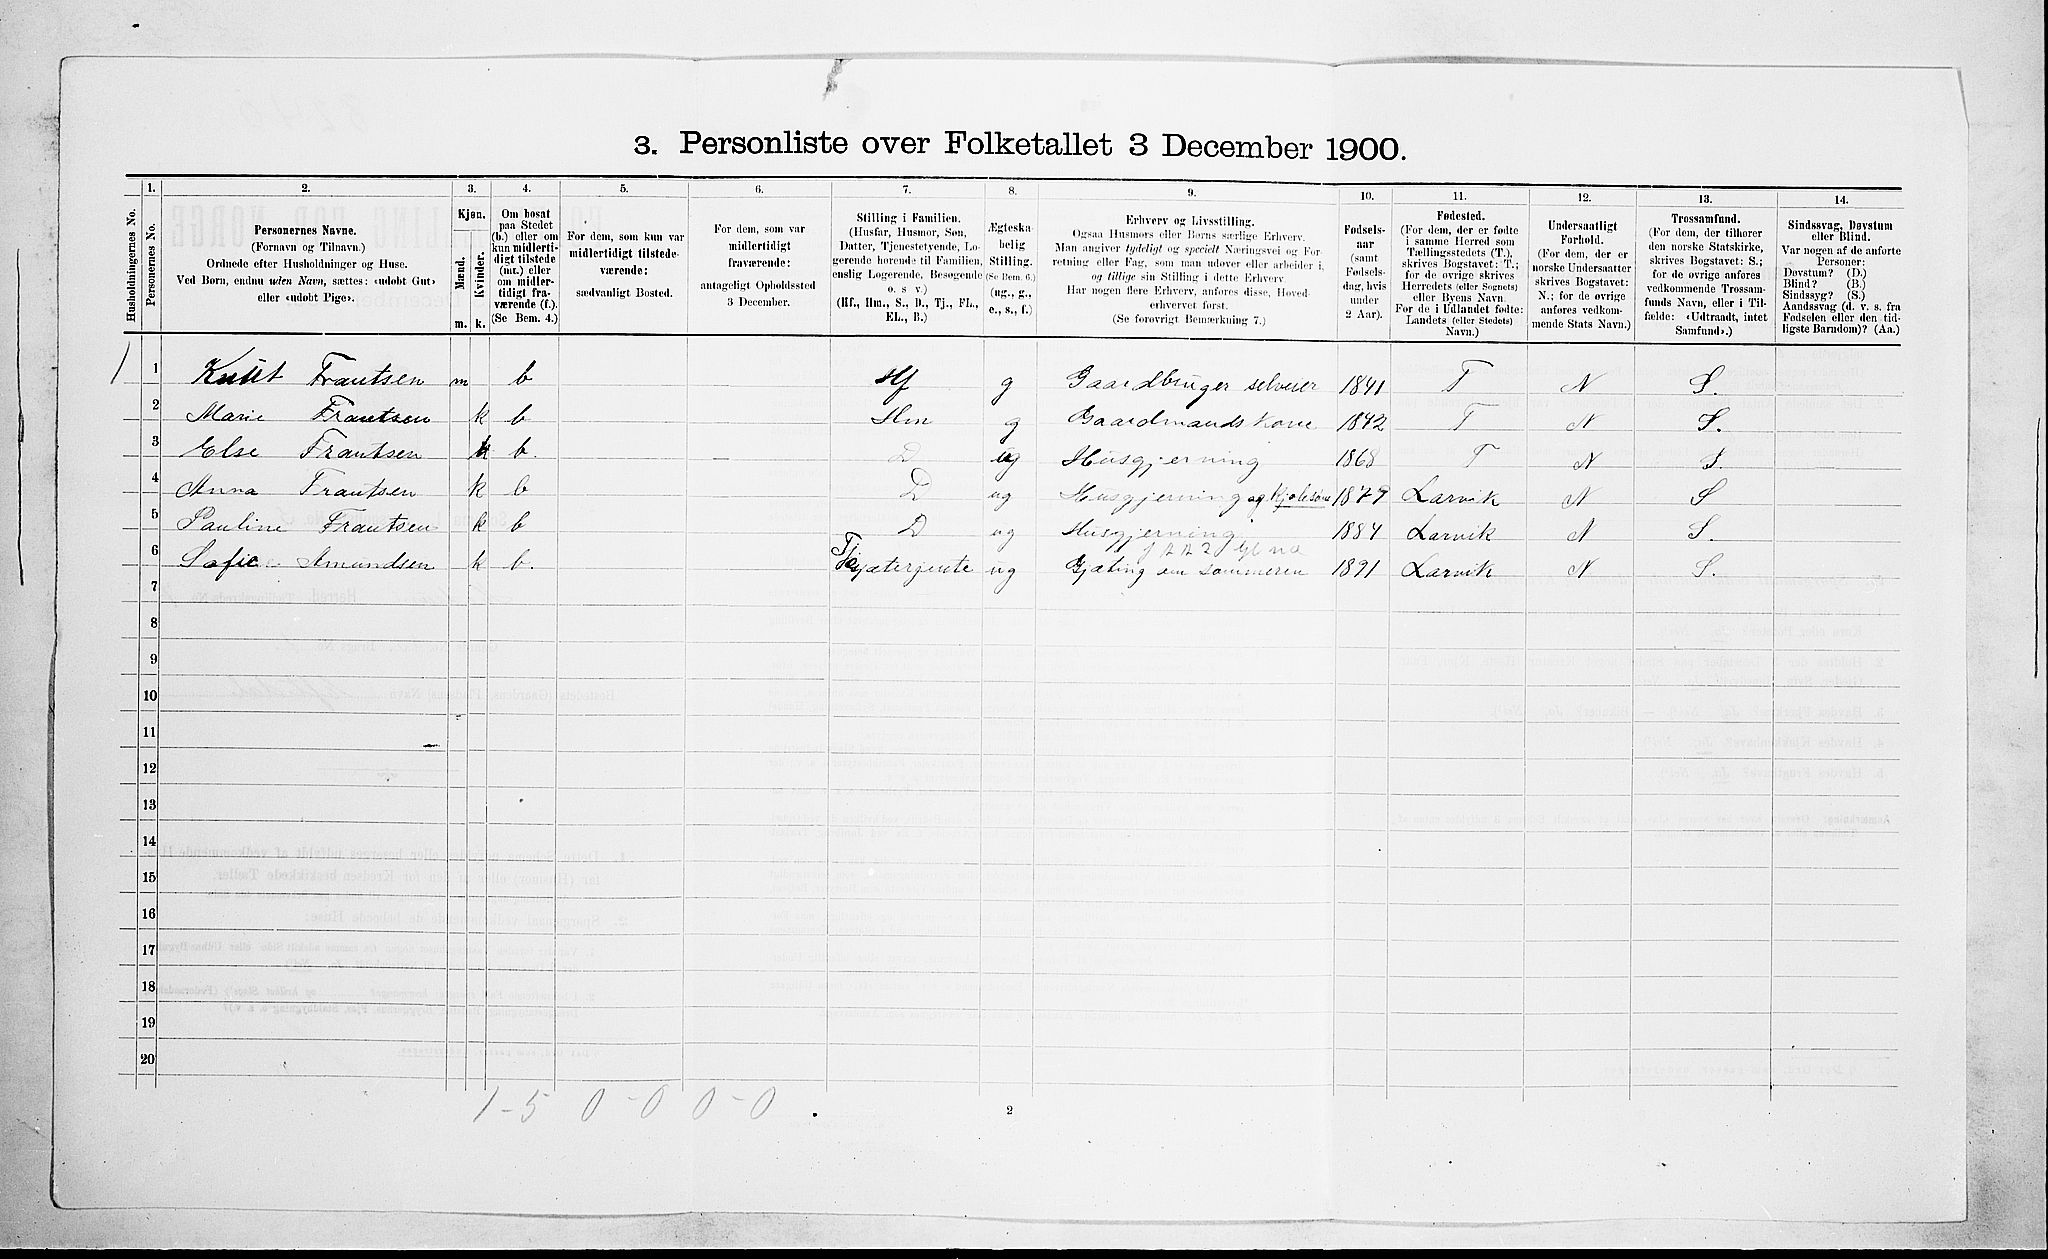 3. Personliste over Folketallet 3 December 1900.
1. 2. 3. 4. 5. 6. 7. 8. 9. 10. 11. 12. 13. 14.
Husholdningernes No.
Personernes No.
Personernes Navne.
(Fornavn og Tilnavn.)
Ordnede efter Husholdninger og Huse.
Ved Børn, endnu uden Navn, sættes: «udøbt Gut»
eller «udøbt Pige».
Kjøn.
Mænd.
Kvinder.
m. k.
Om bosat
paa Stedet
(b.) eller om
kun midlerti-
digt tilstede
(mt.) eller
om midler-
tidigt fra-
værende (f.).
(Se Bem. 4.)
For dem, som kun var
midlertidigt tilstede-
værende:
sædvanligt Bosted.
For dem, som var
midlertidigt
fraværende:
antageligt Opholdssted
3 December.
Stilling i Familien.
(Husfar, Husmor, Søn,
Datter, Tjenestetyende, Lo-
gerende hørende til Familien,
enslig Logerende, Besøgende
o. s. v.)
(Hf., Hm., S., D., Tj., FL.,
EL., B.)
Ægteska-
belig
Stilling.
(Se Bem. 6.)
(ug., g.,
e., s., f.)
Erhverv og Livsstilling.
Ogsaa Husmors eller Børns særlige Erhverv.
Man angiver tydeligt og specielt Næringsvei og For-
retning eller Fag, som man udøver eller arbeider i,
og tillige sin Stilling i dette Erhverv.
Har nogen flere Erhverv, anføres disse, Hoved-
erhvervet først.
(Se forøvrigt Bemærkning 7.)
Fødsels-
aar
(samt
Fødsels-
dag, hvis
under
2 Aar).
Fødested.
(For dem, der er fødte
i samme Herred som
Tællingsstedets (T.),
skrives Bogstavet: T.;
for de øvrige skrives
Herredets (eller Sognets)
eller Byens Navn.
For de i Udlandet fødte:
Landets (eller Stedets)
Navn.)
Undersaatligt
Forhold.
(For dem, der er
norske Undersaatter
skrives Bogstavet:
N.; for de øvrige
anføres vedkom-
mende Stats Navn.)
Trossamfund.
(For dem, der tilhører
den norske Statskirke,
skrives Bogstavet: S.;
for de øvrige anføres
vedkommende Trossam-
funds Navn, eller i Til-
fælde: «Udtraadt, intet
Samfund».)
Sindssvag, Døvstum
eller Blind.
Var nogen af de anførte
Personer:
Døvstum? (D.)
Blind? (B.)
Sindssyg? (S.)
Aandssvag (d. v. s. fra
Fødselen eller den tid-
ligste Barndom)? (Aa.)
1 1 Knut Frantsen m b Hf g Gaardbruger selveier 1841 T N S.
2 Marie Frantsen k b Hm g Gaardmands Kone 1842 T N S.
3 Else Frantsen k b. D ug Husgjerning 1868 T N S.
4 Anna Frantsen k b D ug Husgjerning og Kjolesøm 1879 Larvik N S
5 Pauline Frantsen k b D ug Husgjerning 1884 Larvik N S.
6 Sofie Amundsen k b. Tj Gjæterjente ug Gjæting om sommeren 1891 Larvik N S.
7
8
9
10
11
12
13
14
15
16
17
18
19
20
1 - 5 0 - 0 0 - 0
2